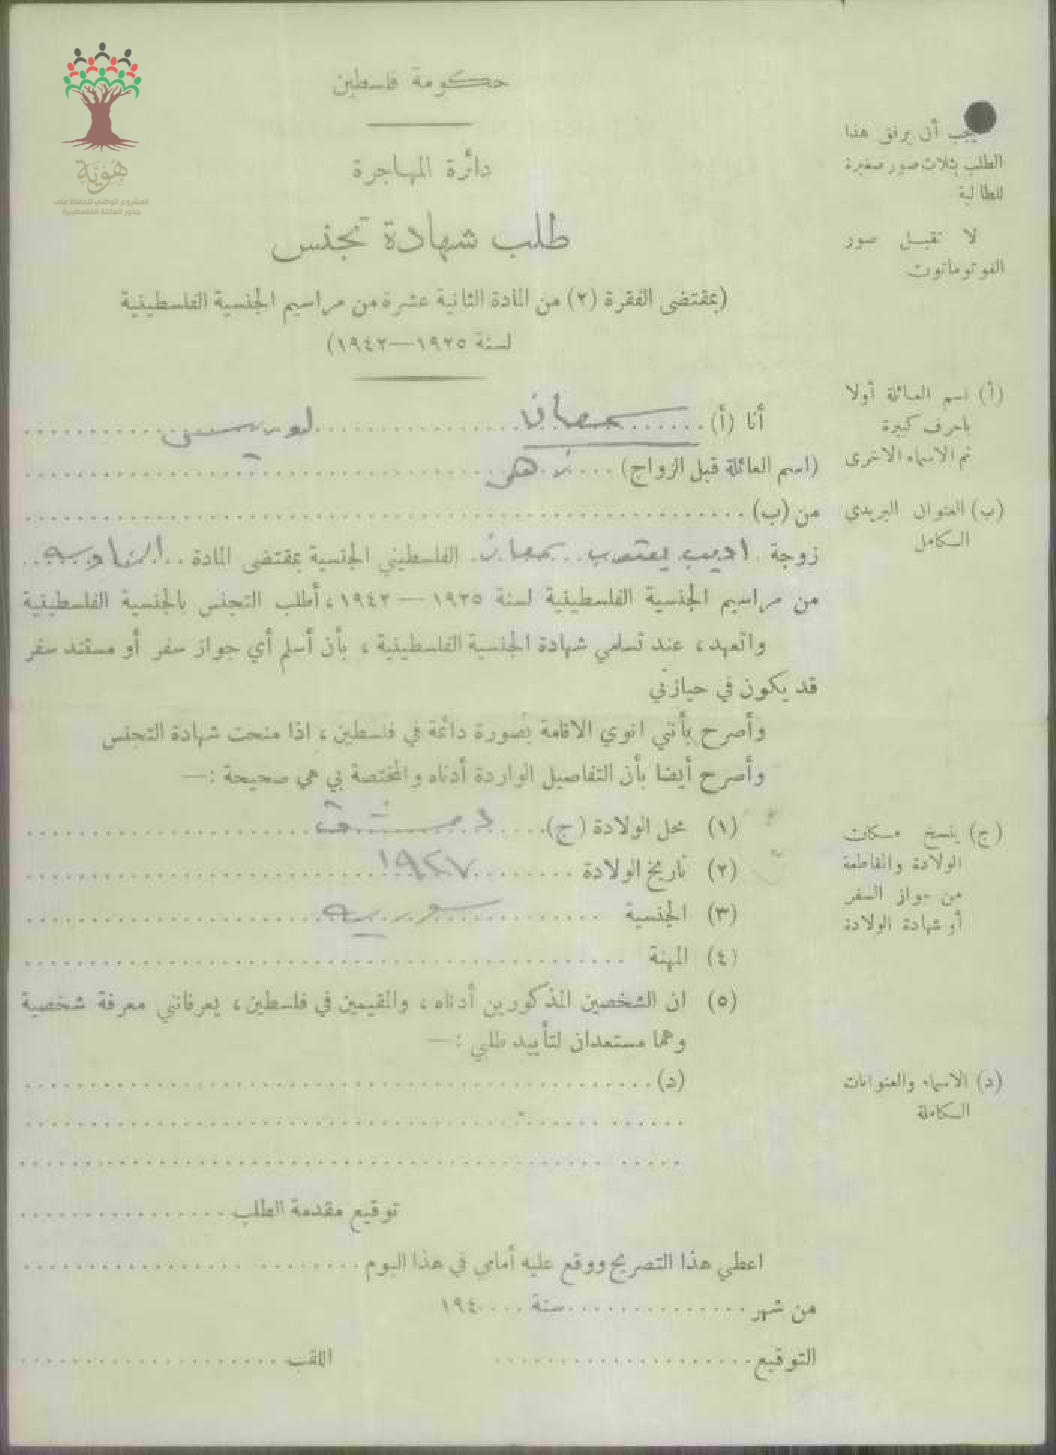 هُويَّة
المشروع الوطني للحفاظ على
جذور العائلة الفلسطينية
حكومة فلسطين
دائرة المهاجرة
طلب شهادة تجنس
(بمقتضى الفقرة (٢) من المادة الثانية عشرة من مراسيم الجنسية الفلسطينية
لسنة ١٩٢٥—١٩٤٢)
يجب أن يرفق هذا
الطلب بثلاث صور صغيرة
للطالبة
لا تقبل صور
الفوتوماتون
أنا (أ) سمعان لوريس
(اسم العائلة قبل الزواج)
من (ب)
زوجة اديب يعقوب سمعان الفلسطيني الجنسية بمقتضى المادة
من مراسيم الجنسية الفلسطينية لسنة ١٩٢٥—١٩٤٢، أطلب التجنس بالجنسية الفلسطينية
واتعهد، عند تسلمي شهادة الجنسية الفلسطينية، بأن أسلم أي جواز سفر أو مستند سفر
قد يكون في حيازتي
وأصرح بأنني انوي الاقامة بصورة دائمة في فلسطين، اذا منحت شهادة التجنس
وأصرح أيضا بأن التفاصيل الواردة أدناه والمختصة بي هي صحيحة :—
(١) محل الولادة (ج) دمشق
(٢) تاريخ الولادة ١٩٢٧
(٣) الجنسية سوريه
(٤) المهنة
(٥) ان الشخصين المذكورين أدناه، والمقيمين في فلسطين، يعرفانني معرفة شخصية
وهما مستعدان لتأييد طلبي :—
(د)
توقيع مقدمة الطلب
اعطي هذا التصريح ووقع عليه أمامي في هذا اليوم
من شهر سنة ١٩٤
التوقيع اللقب
(أ) اسم العائلة أولا
باحرف كبيرة
ثم الاسماء الاخرى
(ب) العنوان البريدي
الكامل
(ج) ينسخ مكان
الولادة والمقاطعة
من جواز السفر
أو شهادة الولادة
(د) الاسماء والعنوانات
الكاملة